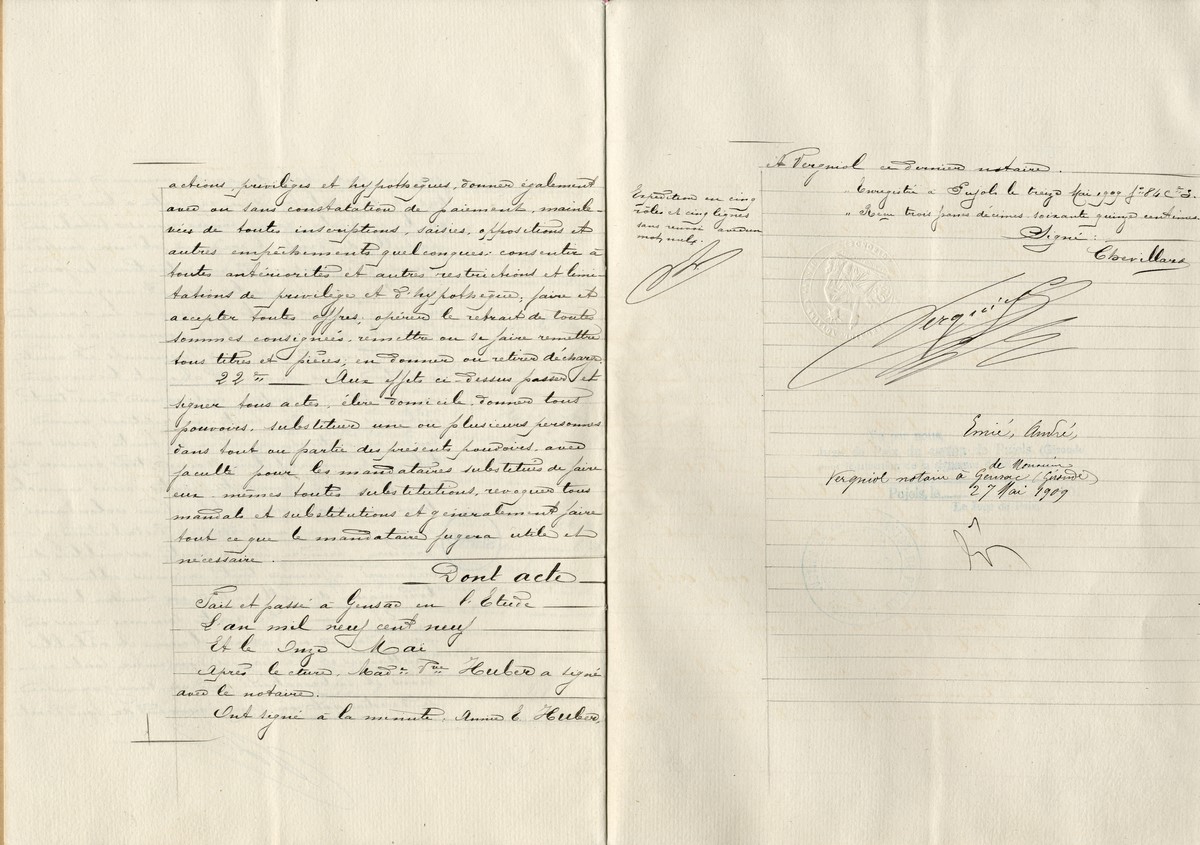 actions, privilèges et hypothèques, donner également
avec ou sans constatation de paiement, mainle-
vées de toute, inscriptions, saisies, oppositions et
autres empêchements quelconques; consentir à
toutes antériorités et autres restrictions et limi-
tations de privilège et d'hypothèque; faire et
accepter toutes offres, opérer le retrait de toutes
sommes consignées, remettre ou se faire remettre
tous titres et pièces, en donner ou retirer décharge.
22° Aux effets ci-dessus passer et
signer tous actes, élire domicile, donner tous
pouvoirs, substituer une ou plusieurs personnes
dans tout ou partie des présents pouvoirs, avec
faculté pour les mandataires substitués de faire
eux mêmes toutes substitutions, revoquer tous
mandats et substitutions et généralement faire
tout ce que le mandataire jugera utile et
nécessaire.
Dont acte
Fait et passé à Gensac en l'Etude
L'an mil neuf cent neuf
Et le Onze Mai
Après lecture, Mad. Vve Huber a signé
avec le notaire.
Ont signé à la minute. Annie E Huber,
Expédition en cinq
rôles et cinq lignes
sans renvoi aucun
mot nul.
et Vergniol ce dernier notaire.
Enregistré à Pujols le treize Mai 1909 f° 84 C
Reçu trois francs décimes soixante quinze centimes
Signé:
Chevillard
Vergniol
Emié, André,
de Monsieur
Vergniol notaire à Gensac (Gironde)
Pujols, le
27 Mai 1909